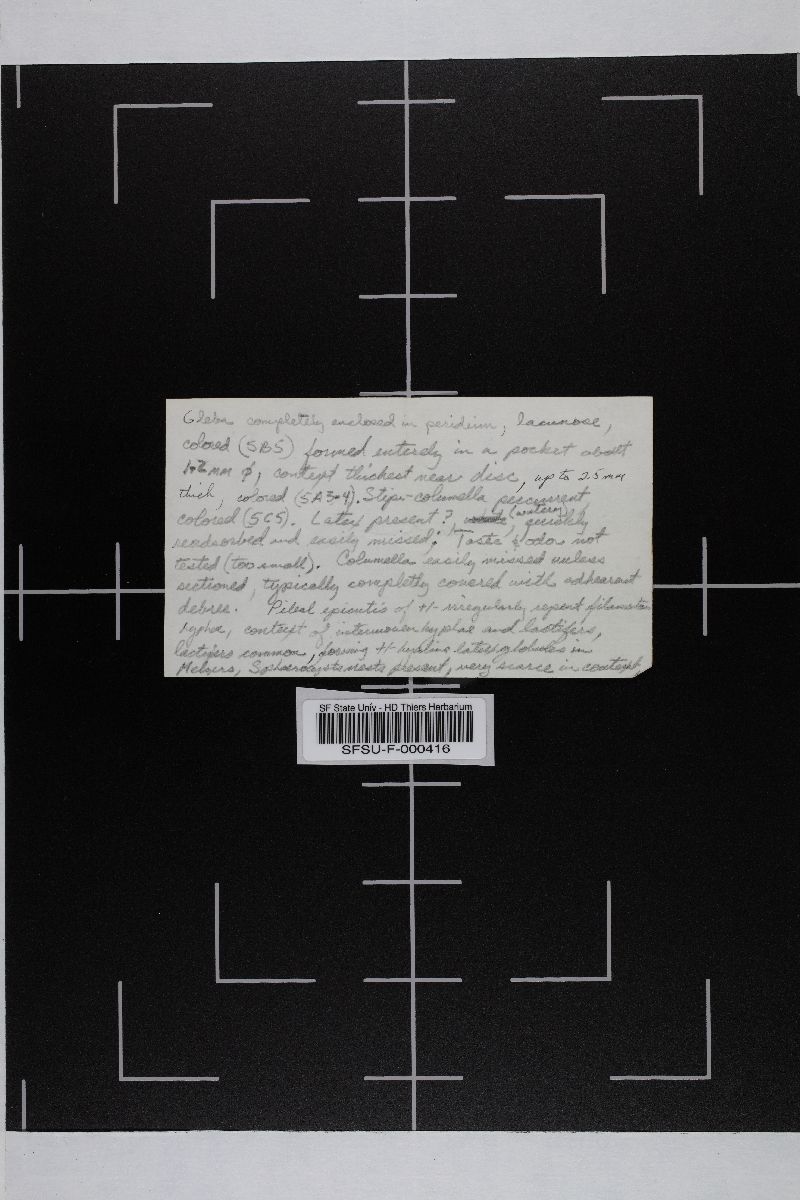 Gleba completely enclosed in peridium, lacunose,
colored (5B5) formed entirely in a pocket about
1-2 mm φ, context thickest near disc, up to 25 mm
thick, colored (5A3-4). Stipe-columella percurrent
colored (5C5). Latex present? (watery), quickly
readsorbed and easily missed; Taste & odor not
tested (too small). Columella easily missed unless
sectioned, typically completly covered with adhearant
debree. Pileal epicutis of +/- irregularly repent filamentous
hyphae, context of interwoven hyphae and lactifers,
lactifers common, forming +/- hyaline latex globules in
Melzers, Sphaerocysts nests present, very scarce in context,
SF State Univ - HD Thiers Herbarium
SFSU-F-000416